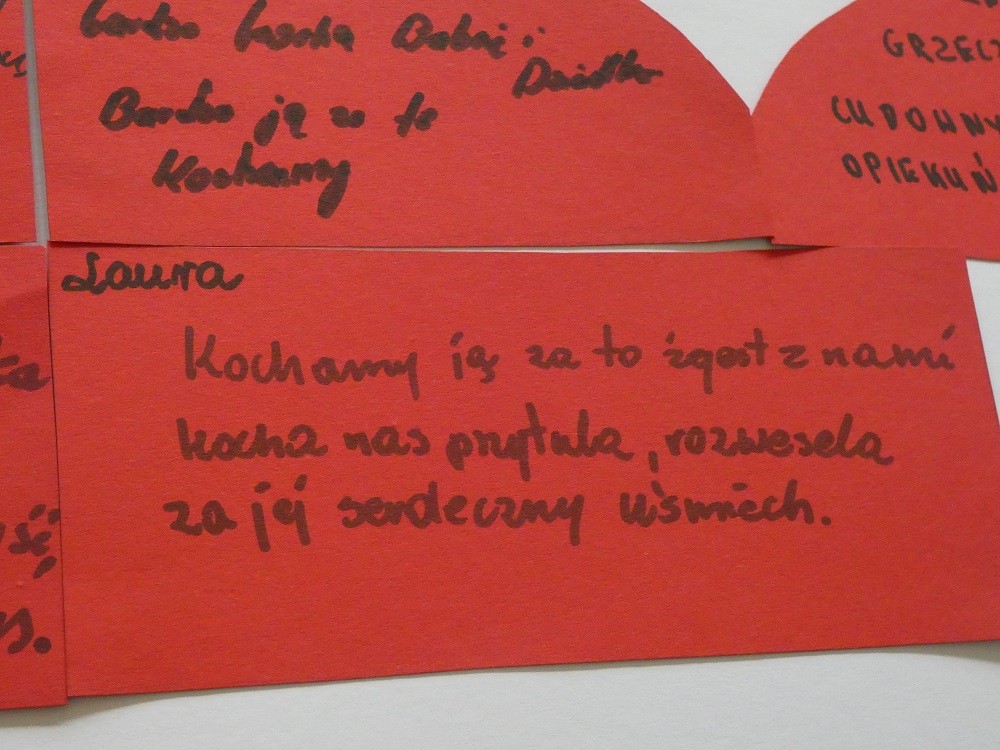 bardzo kocha Babcię i
Dziadka
Bardzo ją za to
Kochamy
GRZECZ
CUDOWNY
OPIEKUŃ
Laura
Kochamy ią za to żejest z nami
kocha nas przytula, rozwesela
za jej serdeczny uśmiech.